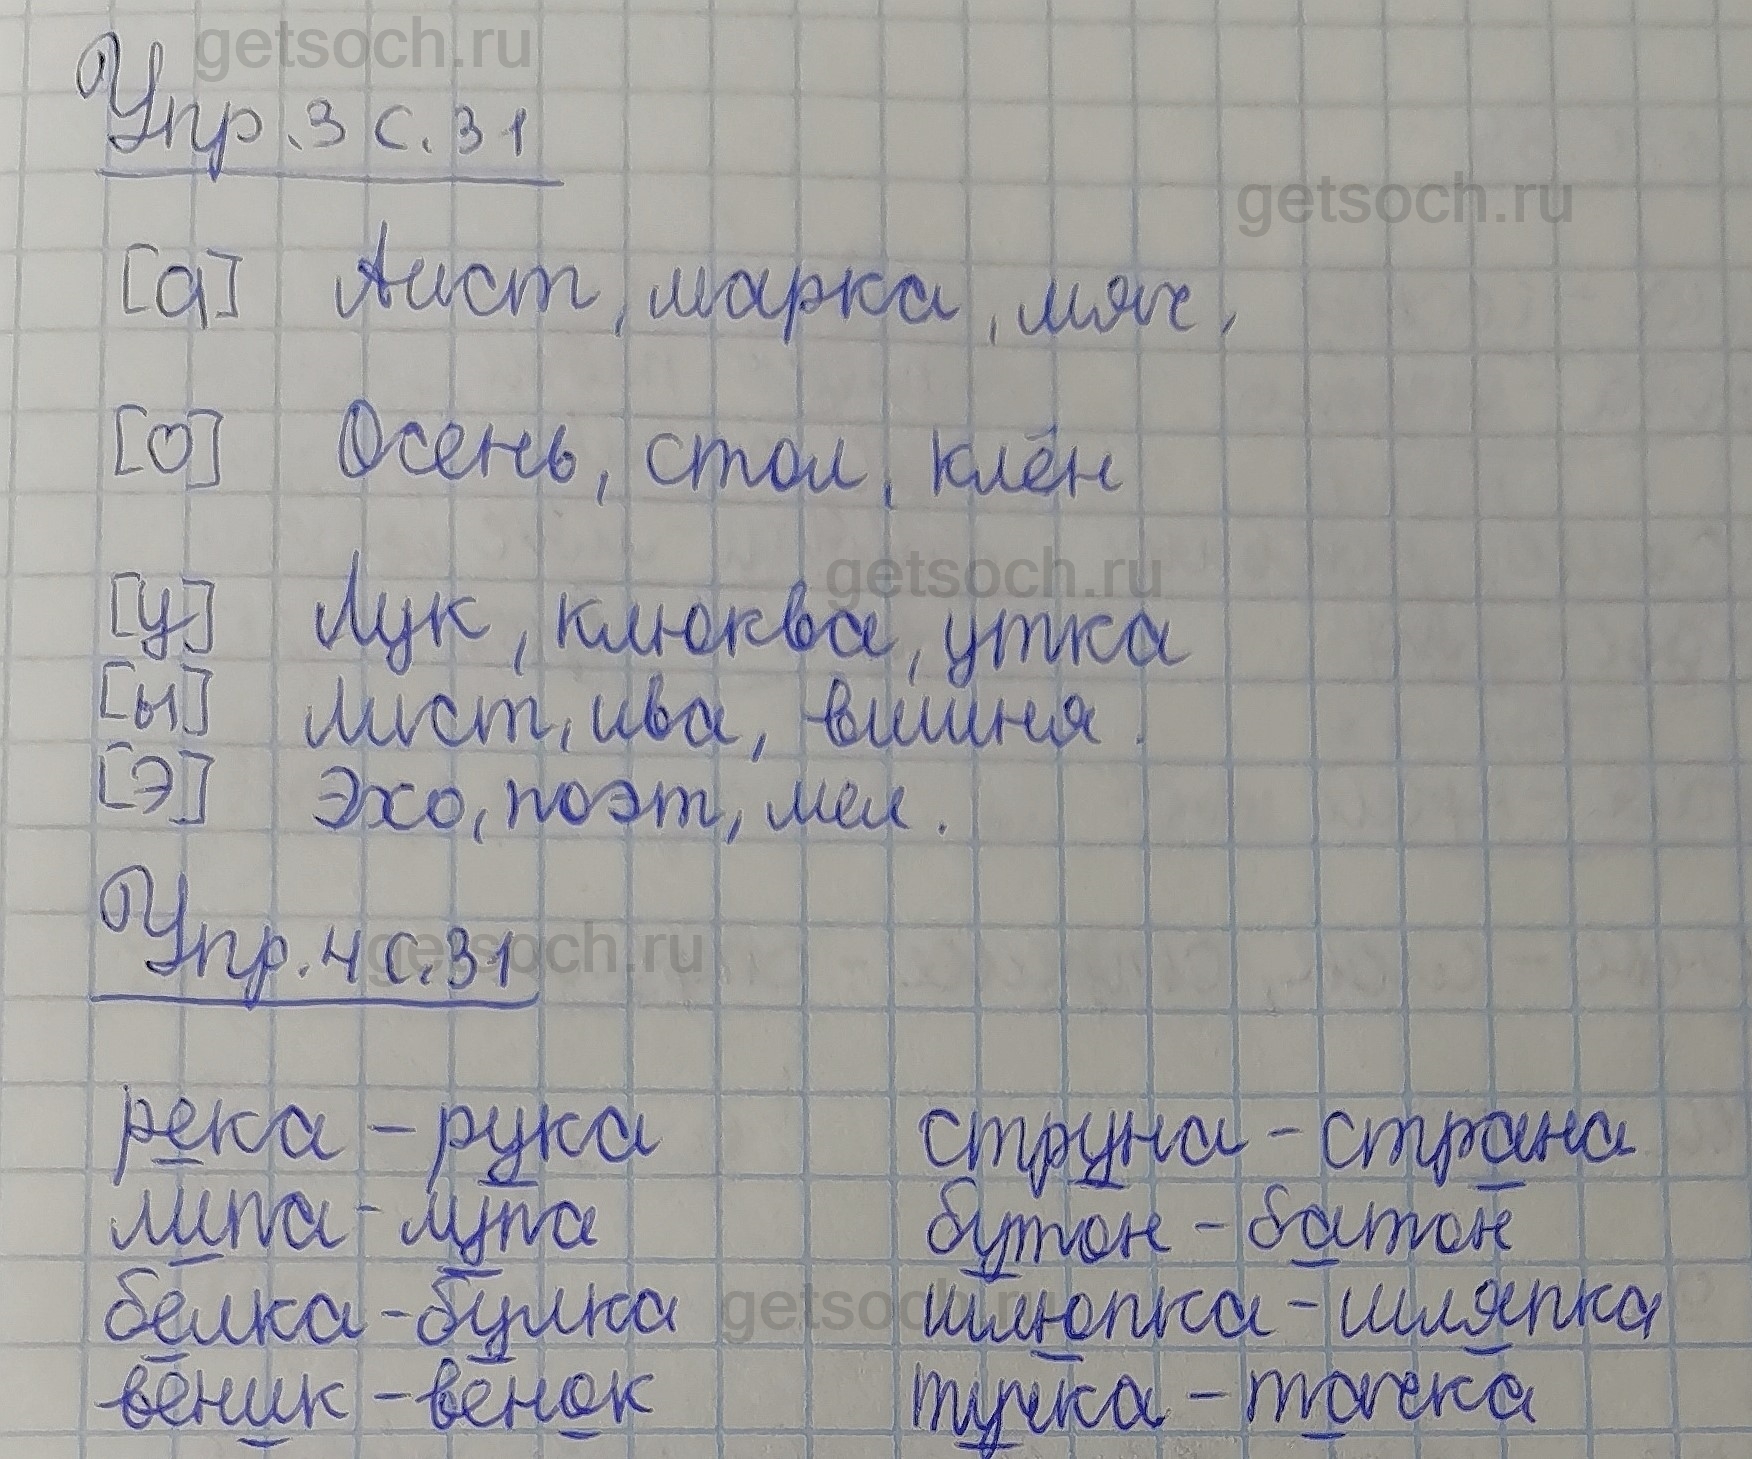 getsoch.ru
Упр.3 с.31
getsoch.ru
[а] Аист, марка, мяч,
[о] Осень, стол, клён
getsoch.ru
[у] Лук, клюква, утка
[ы] лист, ива, вишня.
[э] эхо, поэт, мел.
Упр.4 с.31
getsoch.ru
река – рука струна – страна
липа – лупа бутон – батон
белка – булка шлюпка – шляпка
getsoch.ru
веник – венок тучка – тачка